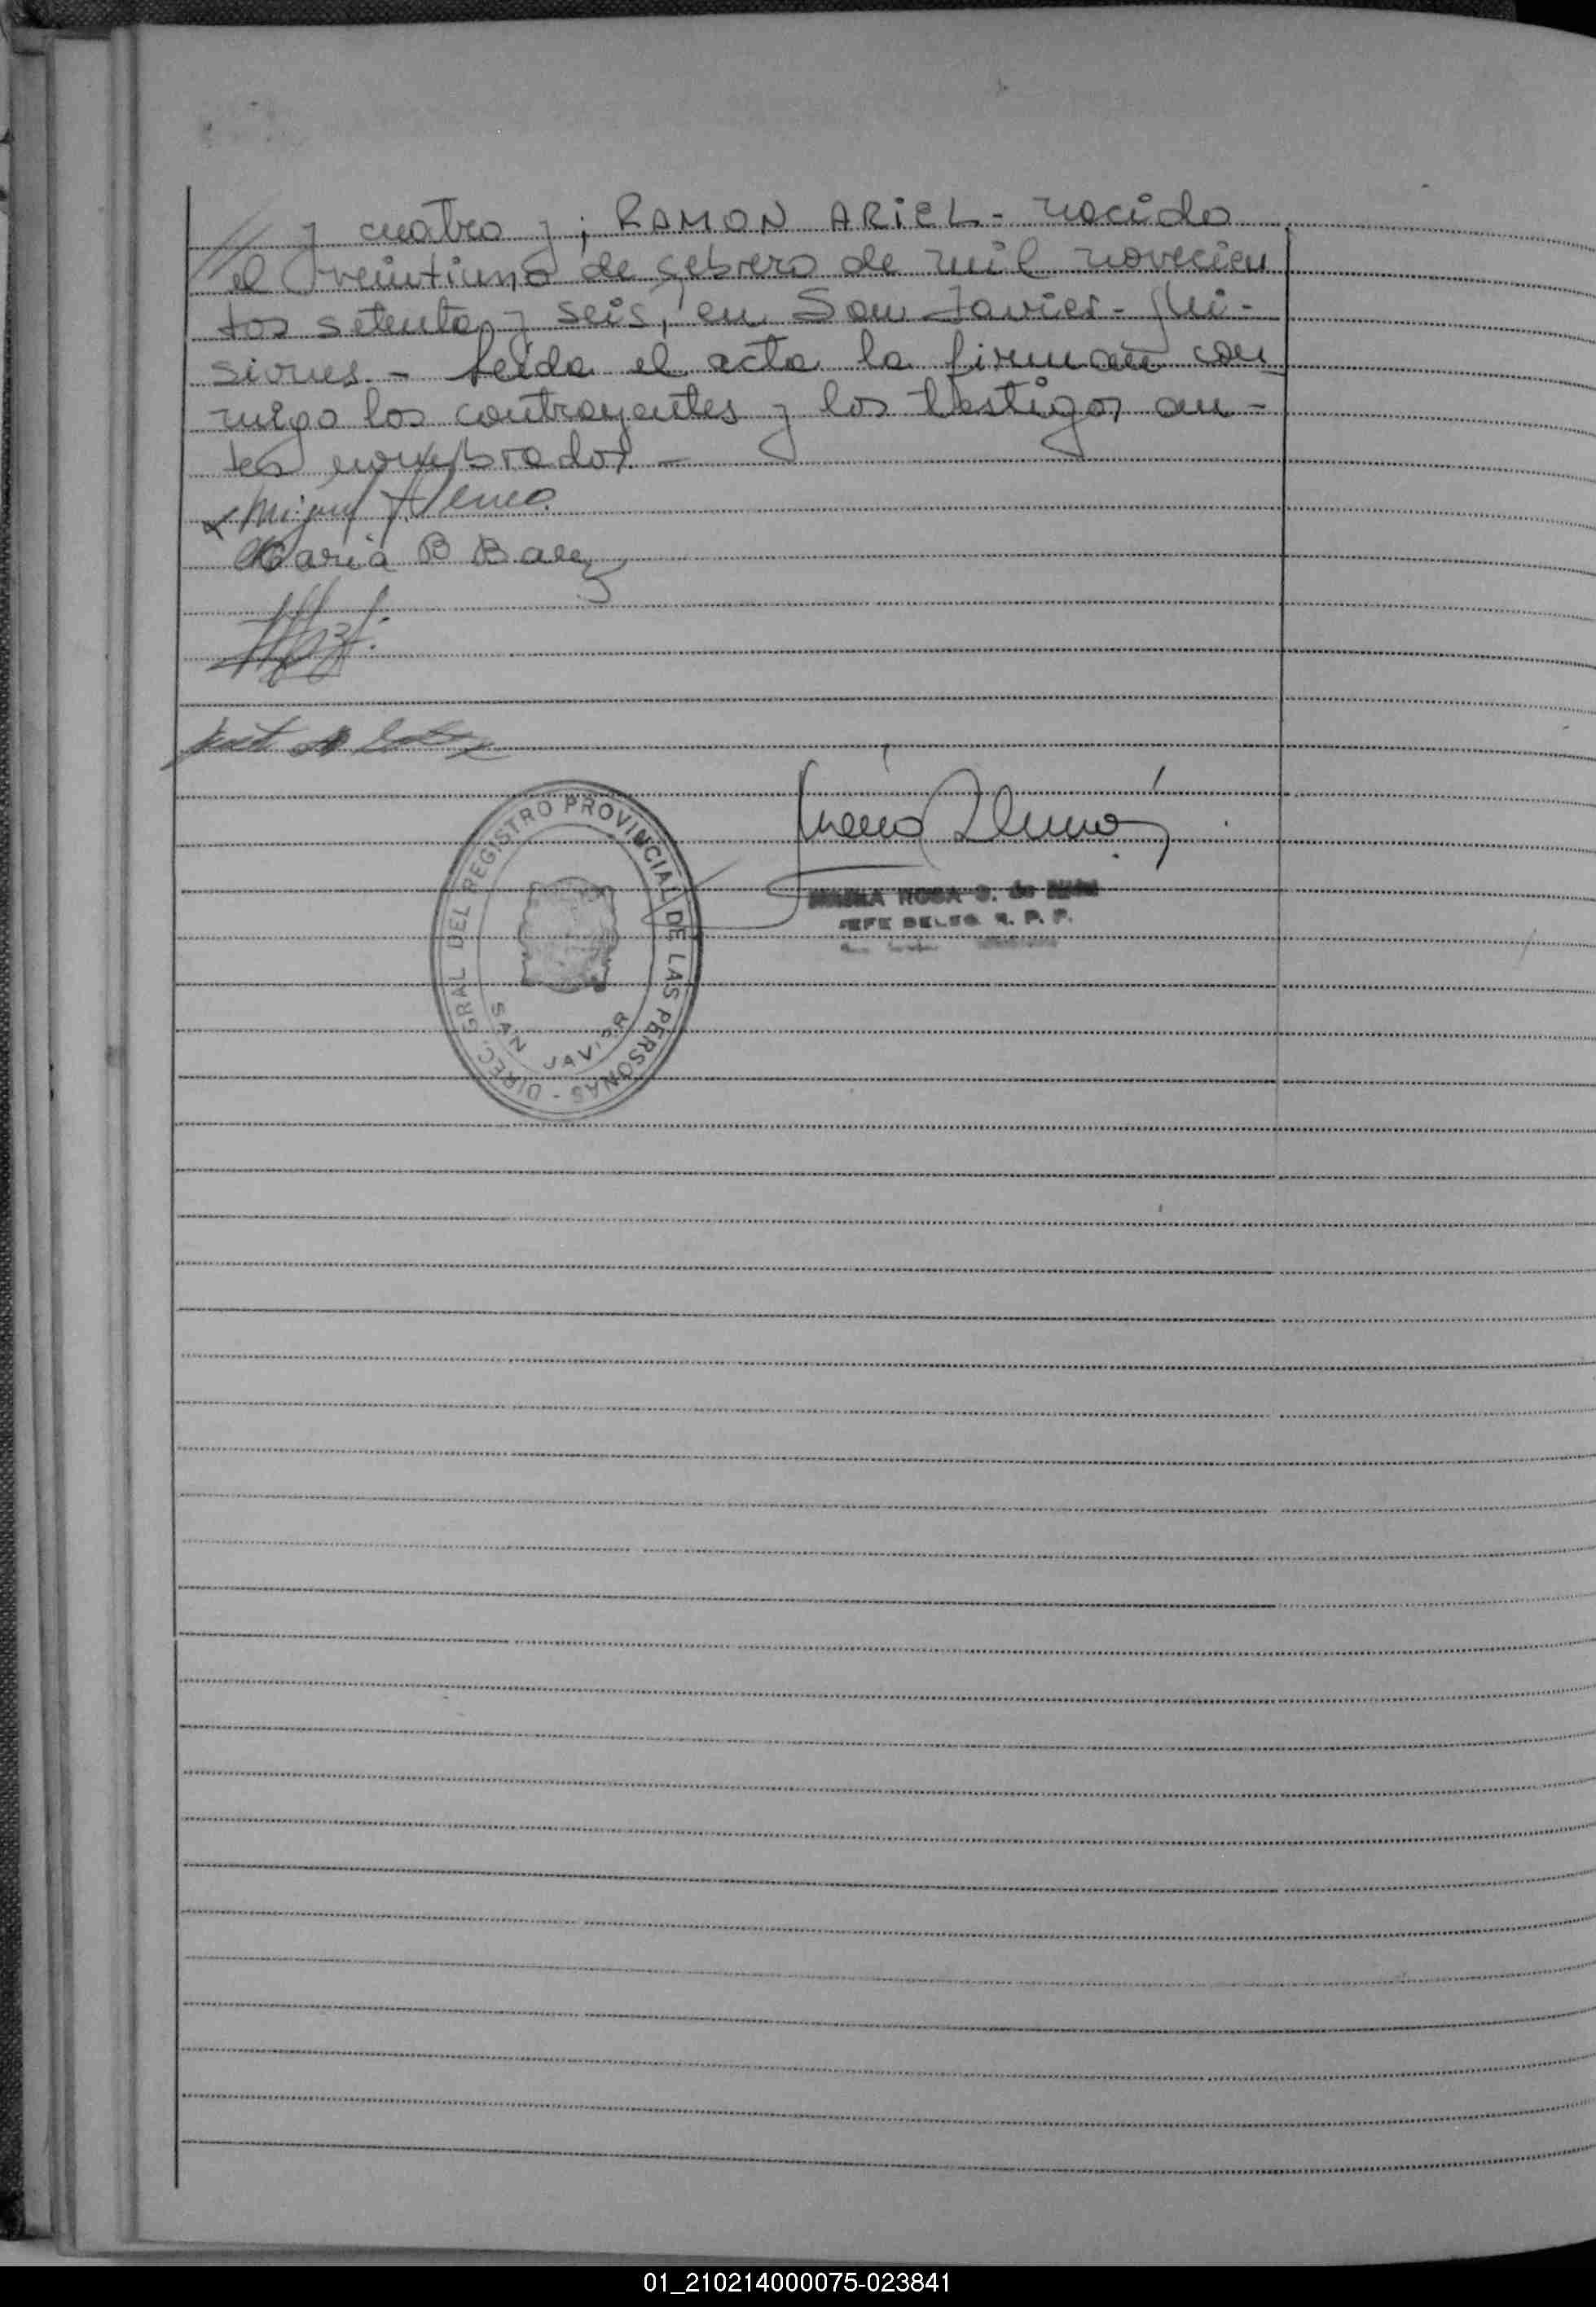 // y cuatro y; RAMON ARIEL - nacido
el veintiuno de febrero de mil novecien
tos setenta y seis, en San Javier - Mi-
siones. - Leída el acta la firman con
migo los contrayentes y los testigos an-
tes nombrados. -
Miguel
Maria B Baez
DIREC. GRAL DEL REGISTRO PROVINCIAL DE LAS PERSONAS -
SAN JAVIER
ROSA de
JEFE DELEG. R. P. P.
01_210214000075-023841